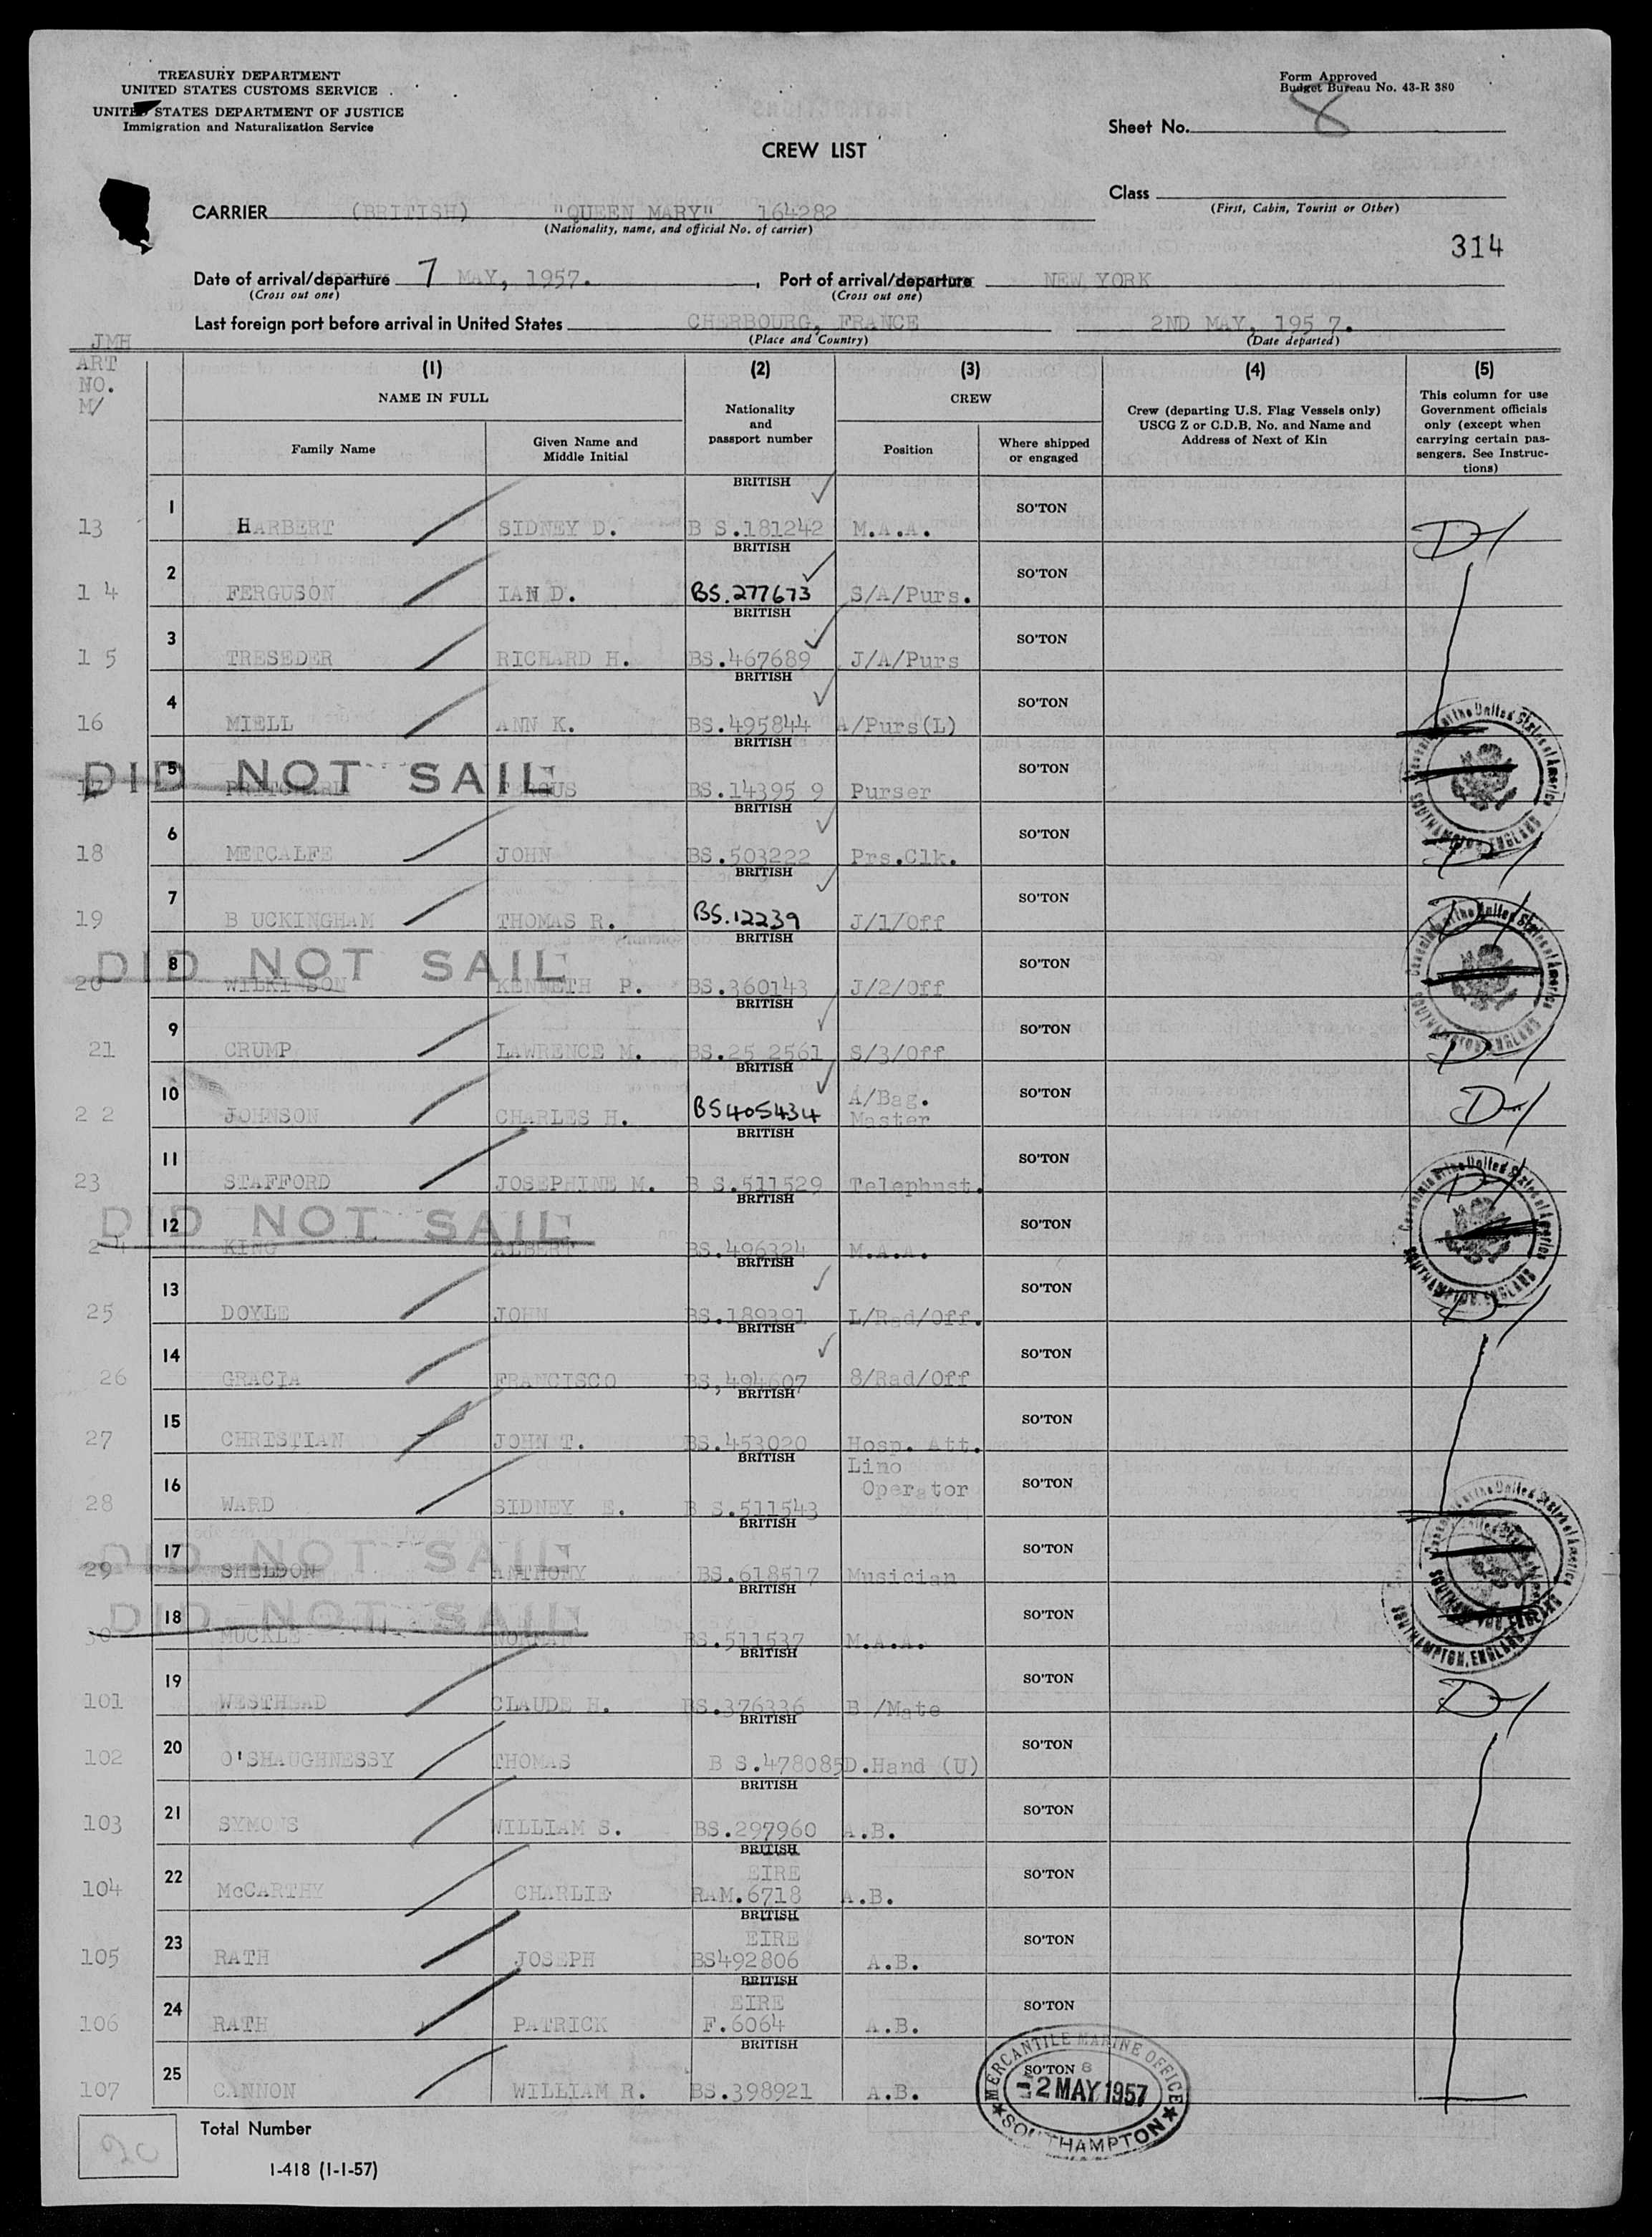 TREASURY DEPARTMENT
UNITED STATES CUSTOMS SERVICE
UNITED STATES DEPARTMENT OF JUSTICE
Immigration and Naturalization Service
Form Approved
Budget Bureau No. 43-R 380
Sheet No. 8
CREW LIST
Class
(First, Cabin, Tourist or Other)
CARRIER (BRITISH) "QUEEN MARY" 164282
(Nationality, name, and official No. of carrier)
314
Date of arrival/departure 7 MAY, 1957. , Port of arrival/departure NEW YORK
(Cross out one) (Cross out one)
Last foreign port before arrival in United States CHERBOURG, FRANCE 2ND MAY, 195 7.
(Place and Country) (Date departed)
JMH
ART
NO.
M/
(1) (2) (3) (4) (5)
NAME IN FULL
Family Name
Given Name and
Middle Initial
Nationality
and
passport number
CREW
Position
Where shipped
or engaged
Crew (departing U.S. Flag Vessels only)
USCG Z or C.D.B. No. and Name and
Address of Next of Kin
This column for use
Government officials
only (except when
carrying certain pas-
sengers. See Instruc-
tions)
BRITISH
13 1 HARBERT SIDNEY D. B S.181242 M.A.A. SO'TON D
BRITISH
1 4 2 FERGUSON IAN D. BS.277673 S/A/Purs. SO'TON
BRITISH
1 5 3 TRESEDER RICHARD H. BS.467689 J/A/Purs SO'TON
BRITISH
16 4 MIELL ANN K. BS.495844 A/Purs(L) SO'TON
BRITISH
DID NOT SAIL
17 5 BS.14395 9 Purser SO'TON
BRITISH
18 6 METCALFE JOHN BS.503222 Prs.Clk. SO'TON
BRITISH
19 7 B UCKINGHAM THOMAS R. BS.12239 J/1/Off SO'TON
BRITISH
DID NOT SAIL
20 8 WILKINSON KENNETH P. BS.360143 J/2/Off SO'TON
BRITISH
21 9 CRUMP LAWRENCE M. BS.25 2561 S/3/Off SO'TON D
BRITISH
2 2 10 JOHNSON CHARLES H. BS405434 A/Bag.
Master SO'TON D
BRITISH
23 11 STAFFORD JOSEPHINE M. B S.511529 Telephnst. SO'TON D
BRITISH
DID NOT SAIL
24 12 KING ALBERT BS.496324 M.A.A. SO'TON
BRITISH
25 13 DOYLE JOHN BS.189391 L/Rad/Off. SO'TON D
BRITISH
26 14 GRACIA FRANCISCO BS,494607 8/Rad/Off SO'TON
BRITISH
27 15 CHRISTIAN JOHN T. BS.453020 Hosp. Att. SO'TON
BRITISH
28 16 WARD SIDNEY E. B S.511543 Lino
Operator SO'TON
BRITISH
DID NOT SAIL
29 17 SHELDON ANTHONY BS.618517 Musician SO'TON
BRITISH
DID NOT SAIL
30 18 MUCKLE NORMAN BS.511537 M.A.A. SO'TON
BRITISH
101 19 WESTHEAD CLAUDE H. BS.376336 B /Mate SO'TON D
BRITISH
102 20 O'SHAUGHNESSY THOMAS B S.478085 D.Hand (U) SO'TON
BRITISH
103 21 SYMONS WILLIAM S. BS.297960 A.B. SO'TON
BRITISH
EIRE
104 22 McCARTHY CHARLIE RAM.6718 A.B. SO'TON
BRITISH
EIRE
105 23 RATH JOSEPH BS492806 A.B. SO'TON
BRITISH
EIRE
106 24 RATH PATRICK F.6064 A.B. SO'TON
BRITISH
107 25 CANNON WILLIAM R. BS.398921 A.B. SO'TON 8
MERCANTILE MARINE OFFICE
-2 MAY 1957
SOUTHAMPTON
20
Total Number
I-418 (1-1-57)